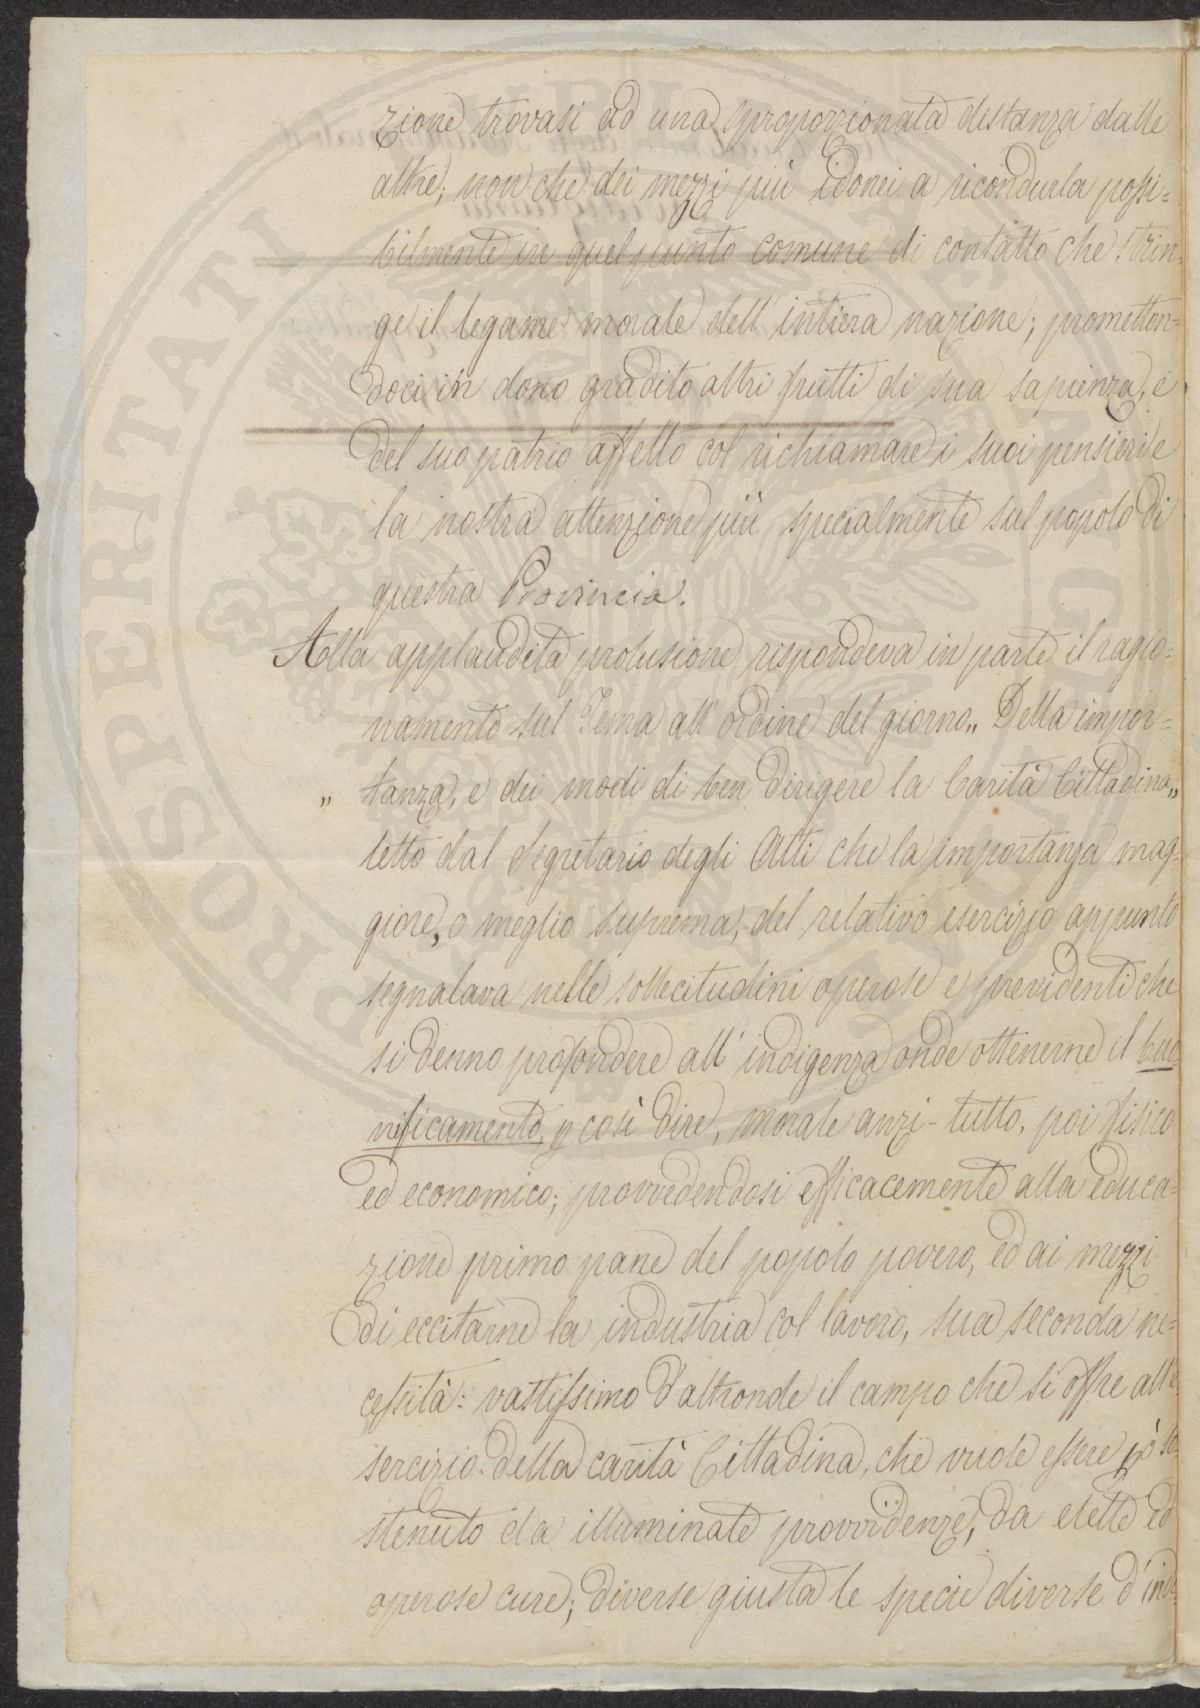 zione trovasi ad una sproporzionata distanza dalle
altre; non che dei mezzi più idonei a ricondurla possi=
bilmente in quel punto comune di contatto che strin=
ge il legame morale dell'intiera nazione; prometten=
doci in dono gradito altri frutti di sua sapienza, e
del suo patrio affetto col richiamare i suoi pensieri e
la nostra attenzione più specialmente sul popolo di
questa Provincia.
Alla applaudita prolusione rispondeva in parte il ragio=
namento sul Tema all'ordine del giorno „ Della impor=
„ tanza, e dei modi di ben dirigere la Carità Cittadina „
letto dal Segretario degli Atti che la importanza mag=
giore, o meglio suprema, del relativo esercizio appunto
segnalava nelle sollecitudini operose e previdenti che
si denno profondere all'indigenza onde ottenerne il buo
nificamento, p così dire, morale anzi-tutto, poi fisico
ed economico; provvedendosi efficacemente alla educa=
zione primo pane del popolo povero, ed ai mezzi
di eccitarne la industria col lavoro, sua seconda ne=
cessità: vastissimo d'altronde il campo che si offre all'e
sercizio della carità Cittadina, che vuole essere pò so=
stenuto da illuminate provvidenze, da elette ed
operose cure; diverse giusta le specie diverse d'indi=
PROSPERITATI